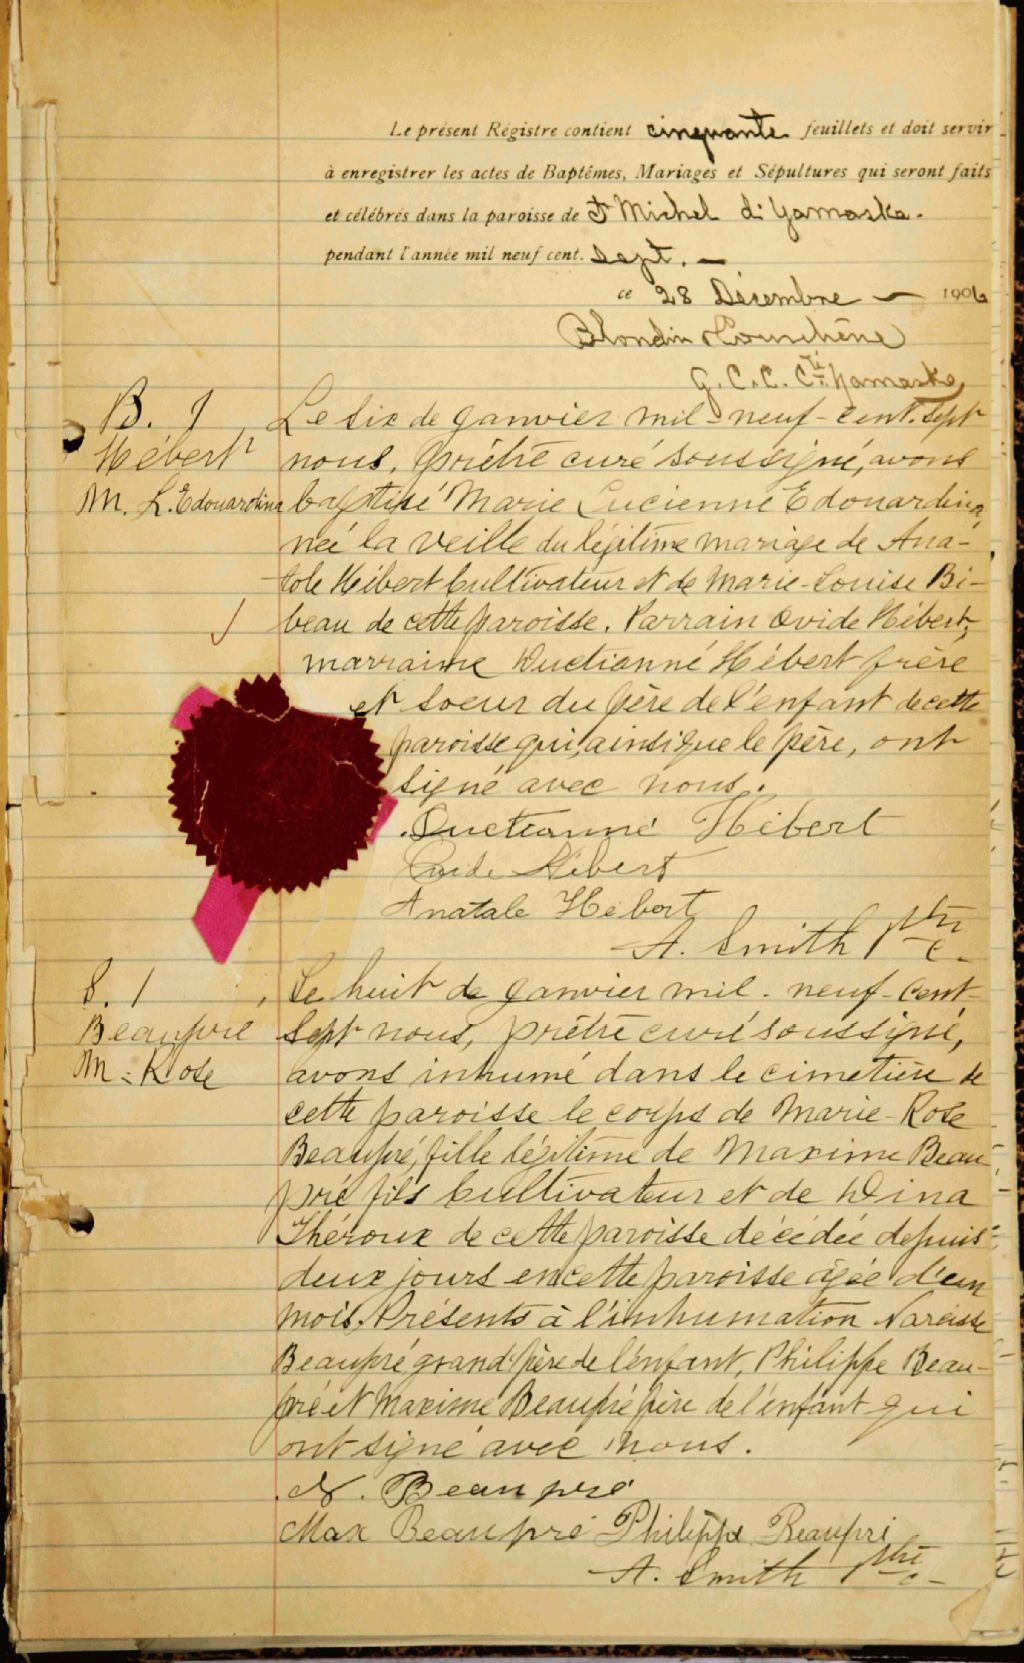 Le présent Régistre contient cinquante feuillets et doit servir
à enregistrer les actes de Baptêmes, Mariages et Sépultures qui seront faits
et célébrés dans la paroisse de St Michel d'Yamaska.
pendant l'année mil neuf cent. Sept. —
ce 28 Décembre — 1906
Blondin
G. C. C. Cté. Yamaska
B. 1
Hébert
M. L. Edouardina
Le six de janvier mil-neuf-cent-sept
nous, prêtre curé soussigné, avons
baptisé Marie Lucienne Edouardina
née la veille du légitime mariage de Ana-
tole Hébert Cultivateur et de Marie-Louise Bi-
beau de cette paroisse. Parrain Ovide Hébert,
marraine Hébert frère
et soeur du père de l'enfant de cette
paroisse qui, ainsi que le père, ont
signé avec nous.
Hébert
Ovide Hébert
Anatale Hebert
A. Smith Ptre
c.
S. 1
Beaupré
M. Rose
Le huit de janvier mil-neuf-cent-
sept nous, prêtre curé soussigné,
avons inhumé dans le cimetière de
cette paroisse le corps de Marie-Rose
Beaupré, fille légitime de Maxime Beau-
pré fils Cultivateur et de Dina
Théroux de cette paroisse décédée depuis
deux jours en cette paroisse âgée d'un
mois. Présents à l'inhumation Narcisse
Beaupré grand-père de l'enfant, Philippe Beau-
pré et Maxime Beaupré père de l'enfant qui
ont signé avec nous.
N. Beaupré
Max Beaupré Philippe Beaupré
A. Smith Ptre
c.